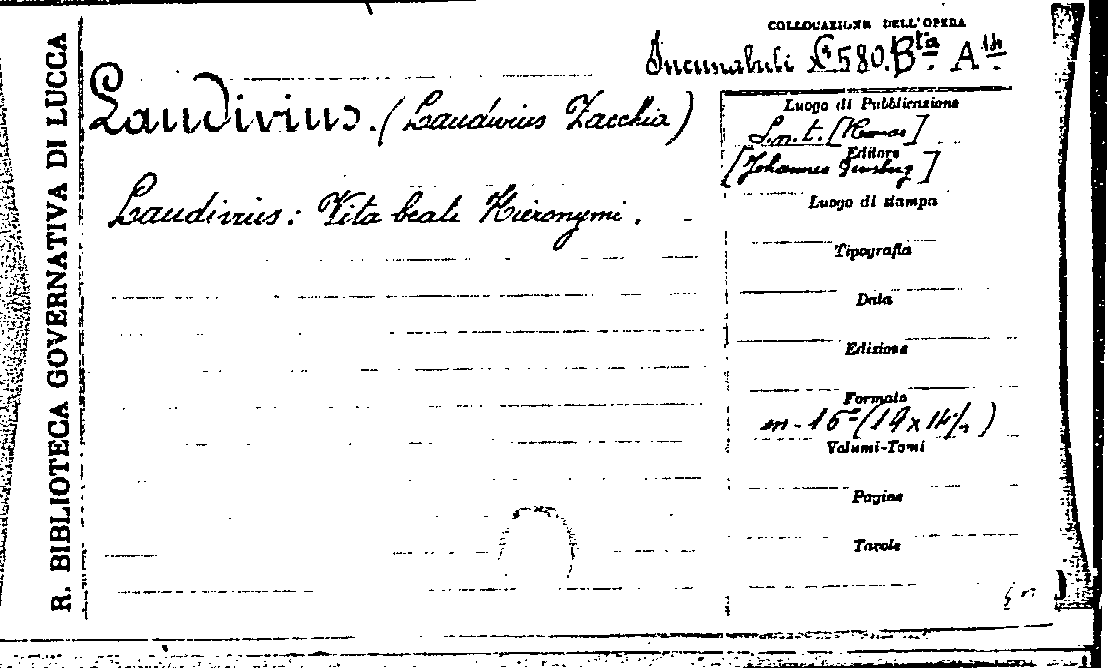 R. BIBLIOTECA GOVERNATIVA DI LUCCA
COLLOCAZIONE DELL'OPERA
Incunabuli 580. Bta. A
Laudivius. (Laudivius Zacchia)
Laudivius: Vita beati Hieronymi.
Luogo di Pubblicazione
S. n. t. [Roma]
Editore
[Johannes]
Luogo di stampa
Tipografia
Data
Edizione
Formato
in-16°
Volumi-Tomi
Pagine
Tavole